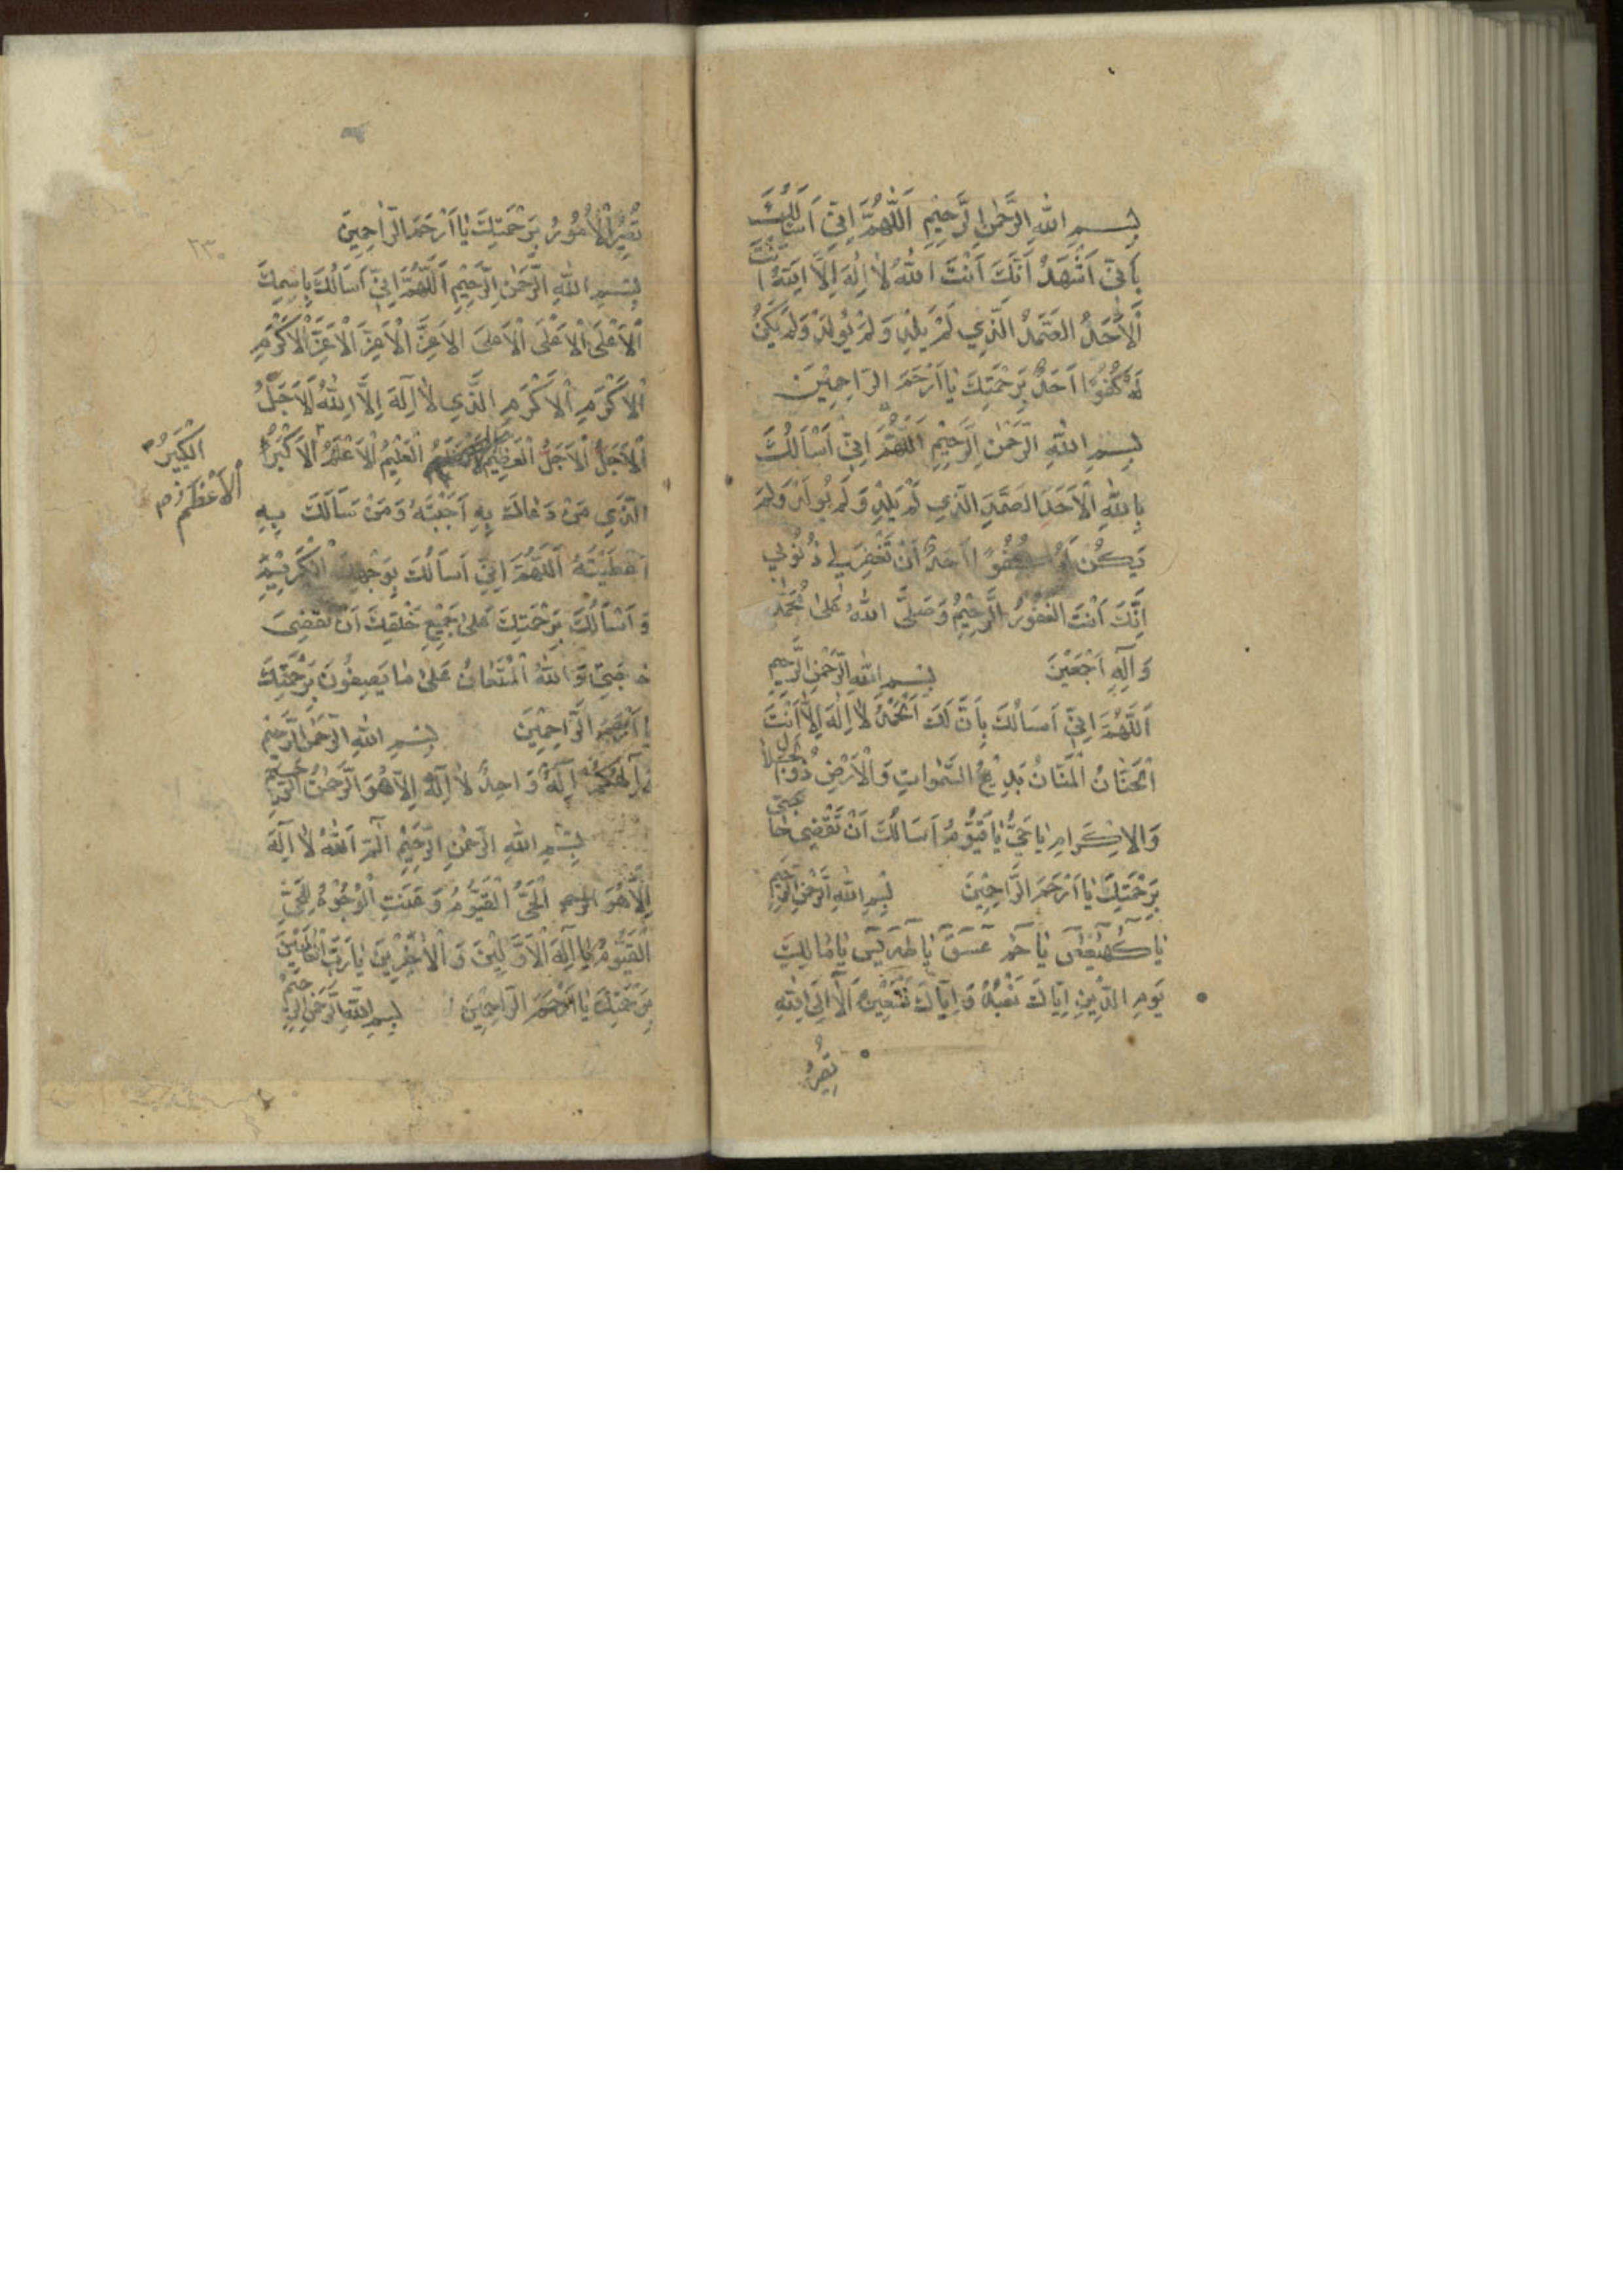 بِسْمِ اللّٰهِ الرَّحْمٰنِ الرَّحِيْمِ اَللّٰهُمَّ اِنِّيْ اَسْاَلُكَ
بِاَنِّيْ اَشْهَدُ اَنَّكَ اَنْتَ اللّٰهُ لٰا اِلٰهَ اِلَّا اَنْتَ
اَلْاَحَدُ الصَّمَدُ الَّذِي لَمْ يَلِدْ وَلَمْ يُولَدْ وَلَمْ يَكُنْ
لَهُ كُفُوًا اَحَدٌ بِرَحْمَتِكَ يٰا اَرْحَمَ الرَّاحِمِيْنَ
بِسْمِ اللّٰهِ الرَّحْمٰنِ الرَّحِيْمِ اَللّٰهُمَّ اِنِّيْ اَسْاَلُكَ
بِاللّٰهِ الْاَحَدِ الصَّمَدِ الَّذِي لَمْ يَلِدْ وَلَمْ يُولَدْ وَلَمْ
يَكُنْ لَهُ كُفُوًا اَحَدٌ اَنْ تَغْفِرَ لِي ذُنُوْبِي
اِنَّكَ اَنْتَ الْغَفُوْرُ الرَّحِيْمُ وَصَلَّى اللّٰهُ عَلٰى مُحَمَّدٍ
وَآلِهِ اَجْمَعِيْنَ بِسْمِ اللّٰهِ الرَّحْمٰنِ الرَّحِيمِ
اَللّٰهُمَّ اِنِّيْ اَسْاَلُكَ بِاَنَّ لَكَ الْحَمْدُ لٰا اِلٰهَ اِلَّا اَنْتَ
الْحَنَّانُ الْمَنَّانُ بَدِيْعُ السَّمٰوَاتِ وَالْاَرْضِ ذُوالْجَلٰالِ
وَالْاِكْرَامِ يٰا حَيُّ يٰا قَيُّوْمُ اَسْاَلُكَ اَنْ تَقْضِيَ حٰاجَتِي
بِرَحْمَتِكَ يٰا اَرْحَمَ الرَّاحِمِيْنَ بِسْمِ اللّٰهِ الرَّحْمٰنِ الرَّحِيمِ
يٰا كٓهٰيٰعٓصٓ يٰا حٰمٓ عٓسٓقٓ يٰا طٰهٰ يٰسٓ يٰا مٰالِكَ
يَوْمِ الدِّيْنِ اِيّٰاكَ نَعْبُدُ وَاِيّٰاكَ نَسْتَعِيْنُ اَلٰا اِلَى اللّٰهِ
تَصِيْرُ
تَصِيْرُ الْاُمُوْرُ بِرَحْمَتِكَ يٰا اَرْحَمَ الرّٰاحِمِيْنَ
٢٣٠
بِسْمِ اللّٰهِ الرَّحْمٰنِ الرَّحِيْمِ اَللّٰهُمَّ اِنِّيْ اَسْاَلُكَ بِاسْمِكَ
الْاَعْلَى الْاَعْلَى الْاَعْلَى الْاَعَزِّ الْاَعَزِّ الْاَعَزِّ الْاَكْرَمِ
الْاَكْرَمِ الْاَكْرَمِ الَّذِي لٰا اِلٰهَ اِلَّا اللّٰهُ الْاَجَلُّ
الْاَجَلُّ الْاَجَلُّ الْعَظِيْمُ الْعَلِيْمُ الْاَعْلَمُ الْاَكْبَرُ
الْكَبِيْرُ
الْاَعْظَمُ
الَّذِي مَنْ دَعٰاكَ بِهِ اَجَبْتَهُ وَمَنْ سَاَلَكَ بِهِ
اَعْطَيْتَهُ اَللّٰهُمَّ اِنِّيْ اَسْاَلُكَ بِوَجْهِكَ الْكَرِيْمِ
وَاَسْاَلُكَ بِرَحْمَتِكَ عَلٰى جَمِيْعِ خَلْقِكَ اَنْ تَقْضِيَ
حٰاجَتِي وَاللّٰهُ الْمُسْتَعٰانُ عَلٰى مٰا يَصِفُوْنَ بِرَحْمَتِكَ
يٰا اَرْحَمَ الرَّاحِمِيْنَ بِسْمِ اللّٰهِ الرَّحْمٰنِ الرَّحِيْمِ
وَاِلٰهُكُمْ اِلٰهٌ وَاحِدٌ لٰا اِلٰهَ اِلَّا هُوَ الرَّحْمٰنُ الرَّحِيْمُ
بِسْمِ اللّٰهِ الرَّحْمٰنِ الرَّحِيْمِ الٓمٓ اَللّٰهُ لٰا اِلٰهَ
اِلَّا هُوَ الْحَيُّ الْقَيُّوْمُ وَعَنَتِ الْوُجُوْهُ لِلْحَيِّ
الْقَيُّوْمِ يٰا اِلٰهَ الْاَوَّلِيْنَ وَالْاٰخِرِيْنَ يٰا رَبَّ الْعٰالَمِيْنَ
بِرَحْمَتِكَ يٰا اَرْحَمَ الرَّاحِمِيْنَ بِسْمِ اللّٰهِ الرَّحْمٰنِ الرَّحِيْمِ